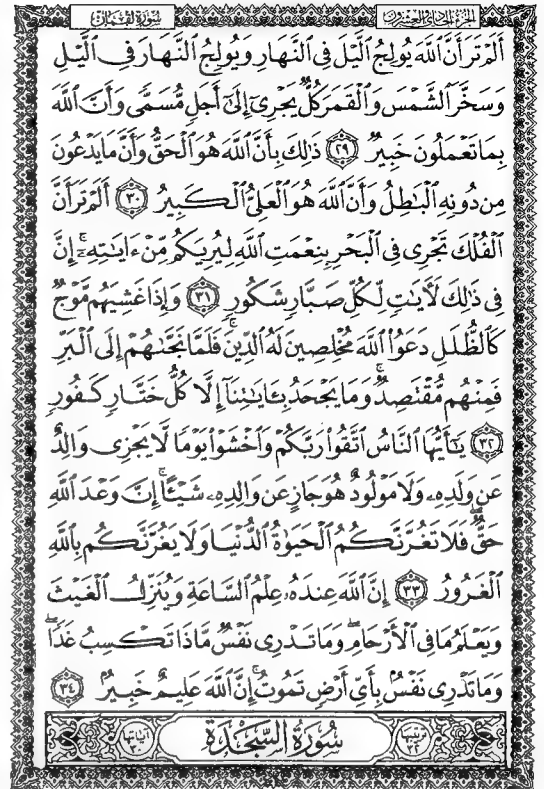 الجزء الحادي والعشرون سورة لقمان
أَلَمْ تَرَ أَنَّ ٱللَّهَ يُولِجُ ٱلَّيْلَ فِى ٱلنَّهَارِ وَيُولِجُ ٱلنَّهَارَ فِى ٱلَّيْلِ
وَسَخَّرَ ٱلشَّمْسَ وَٱلْقَمَرَ كُلٌّ يَجْرِىٓ إِلَىٰٓ أَجَلٍ مُّسَمًّى وَأَنَّ ٱللَّهَ
بِمَا تَعْمَلُونَ خَبِيرٌ ٢٩ ذَٰلِكَ بِأَنَّ ٱللَّهَ هُوَ ٱلْحَقُّ وَأَنَّ مَا يَدْعُونَ
مِن دُونِهِ ٱلْبَٰطِلُ وَأَنَّ ٱللَّهَ هُوَ ٱلْعَلِىُّ ٱلْكَبِيرُ ٣٠ أَلَمْ تَرَ أَنَّ
ٱلْفُلْكَ تَجْرِى فِى ٱلْبَحْرِ بِنِعْمَتِ ٱللَّهِ لِيُرِيَكُم مِّنْ ءَايَٰتِهِۦٓ ۚ إِنَّ
فِى ذَٰلِكَ لَأٓيَٰتٍ لِّكُلِّ صَبَّارٍ شَكُورٍ ٣١ وَإِذَا غَشِيَهُم مَّوْجٌ
كَٱلظُّلَلِ دَعَوُا۟ ٱللَّهَ مُخْلِصِينَ لَهُ ٱلدِّينَ فَلَمَّا نَجَّىٰهُمْ إِلَى ٱلْبَرِّ
فَمِنْهُم مُّقْتَصِدٌ ۚ وَمَا يَجْحَدُ بِـَٔايَٰتِنَآ إِلَّا كُلُّ خَتَّارٍ كَفُورٍ
٣٢ يَٰٓأَيُّهَا ٱلنَّاسُ ٱتَّقُوا۟ رَبَّكُمْ وَٱخْشَوْا۟ يَوْمًا لَّا يَجْزِى وَالِدٌ
عَن وَلَدِهِۦ وَلَا مَوْلُودٌ هُوَ جَازٍ عَن وَالِدِهِۦ شَيْـًٔا ۚ إِنَّ وَعْدَ ٱللَّهِ
حَقٌّ ۖ فَلَا تَغُرَّنَّكُمُ ٱلْحَيَوٰةُ ٱلدُّنْيَا وَلَا يَغُرَّنَّكُم بِٱللَّهِ
ٱلْغَرُورُ ٣٣ إِنَّ ٱللَّهَ عِندَهُۥ عِلْمُ ٱلسَّاعَةِ وَيُنَزِّلُ ٱلْغَيْثَ
وَيَعْلَمُ مَا فِى ٱلْأَرْحَامِ ۖ وَمَا تَدْرِى نَفْسٌ مَّاذَا تَكْسِبُ غَدًا ۖ
وَمَا تَدْرِى نَفْسٌۢ بِأَىِّ أَرْضٍ تَمُوتُ ۚ إِنَّ ٱللَّهَ عَلِيمٌ خَبِيرٌۢ ٣٤
ترتيبها ٣٢ سُورَةُ السَّجْدَةِ آياتها ٣٠